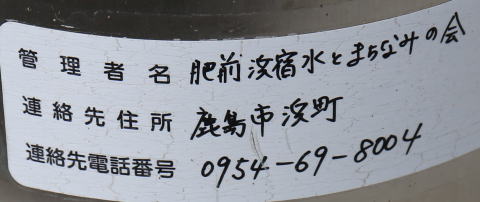 管理者名 肥前浜宿水とまちなみの会
連絡先住所 鹿島市浜町
連絡先電話番号 0954-69-8004